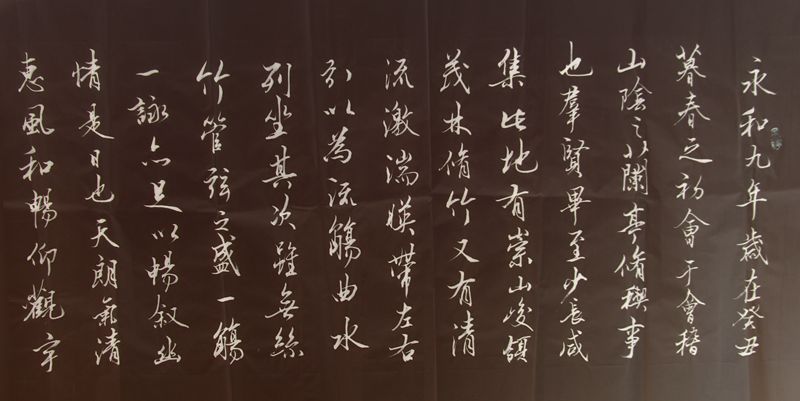 永和九年歲在癸丑
暮春之初會于會稽
山陰之蘭亭脩禊事
也羣賢畢至少長咸
集此地有崇山峻領
茂林脩竹又有清
流激湍暎帶左右
引以為流觴曲水
列坐其次雖無絲
竹管弦之盛一觴
一詠亦足以暢叙幽
情是日也天朗氣清
惠風和暢仰觀宇